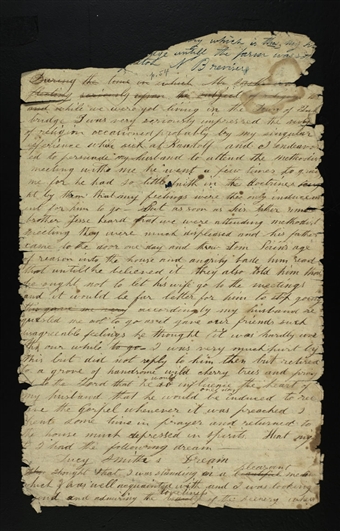 which is the
untill the farier was
N B review
During the time in which
seriously upon the subject of
and while we were yet living in the town of Tun
bridge I was very seriously impressed the subject
of religion occasioned probably by my singular
experience while sick at Randolf and I endeavor
ed to persuade my husband to attend the methodist
meeting with me he went a few times to gratify
me for he had so little faith in the doctrines taught
by them that my feelings were the only inducement
for him to go But as soon as his
brother Jesse heard that we were attending methodist
meeting they were much displeased and his father
came to the door one day and threw Tom Pains age
of reason into the house and angrily bade him read
that untill he believed it They also told him that
he ought not to let his wife go to the meetings
and it would be far better for him to stop going
accordingly my husband re
quested me not to go as it gave our friends such
disagreeable feelings he thought it was hardly worth
our while to go I was very much hurt by
this but did not reply to him then but retired
to a grove of handsome wild cherry trees and prayed
to the Lord that he would the heart of
my husband that he would be induced to re
ceive the gospel whenever it was preached I
spent some time in prayer and returned to
the house much depressed in spirits That night
I had the following dream
Lucy Smith's Dream
I thought that I was standing in a pleasant
which I was well acquainted with and I was looking
round and admiring the of the scenery